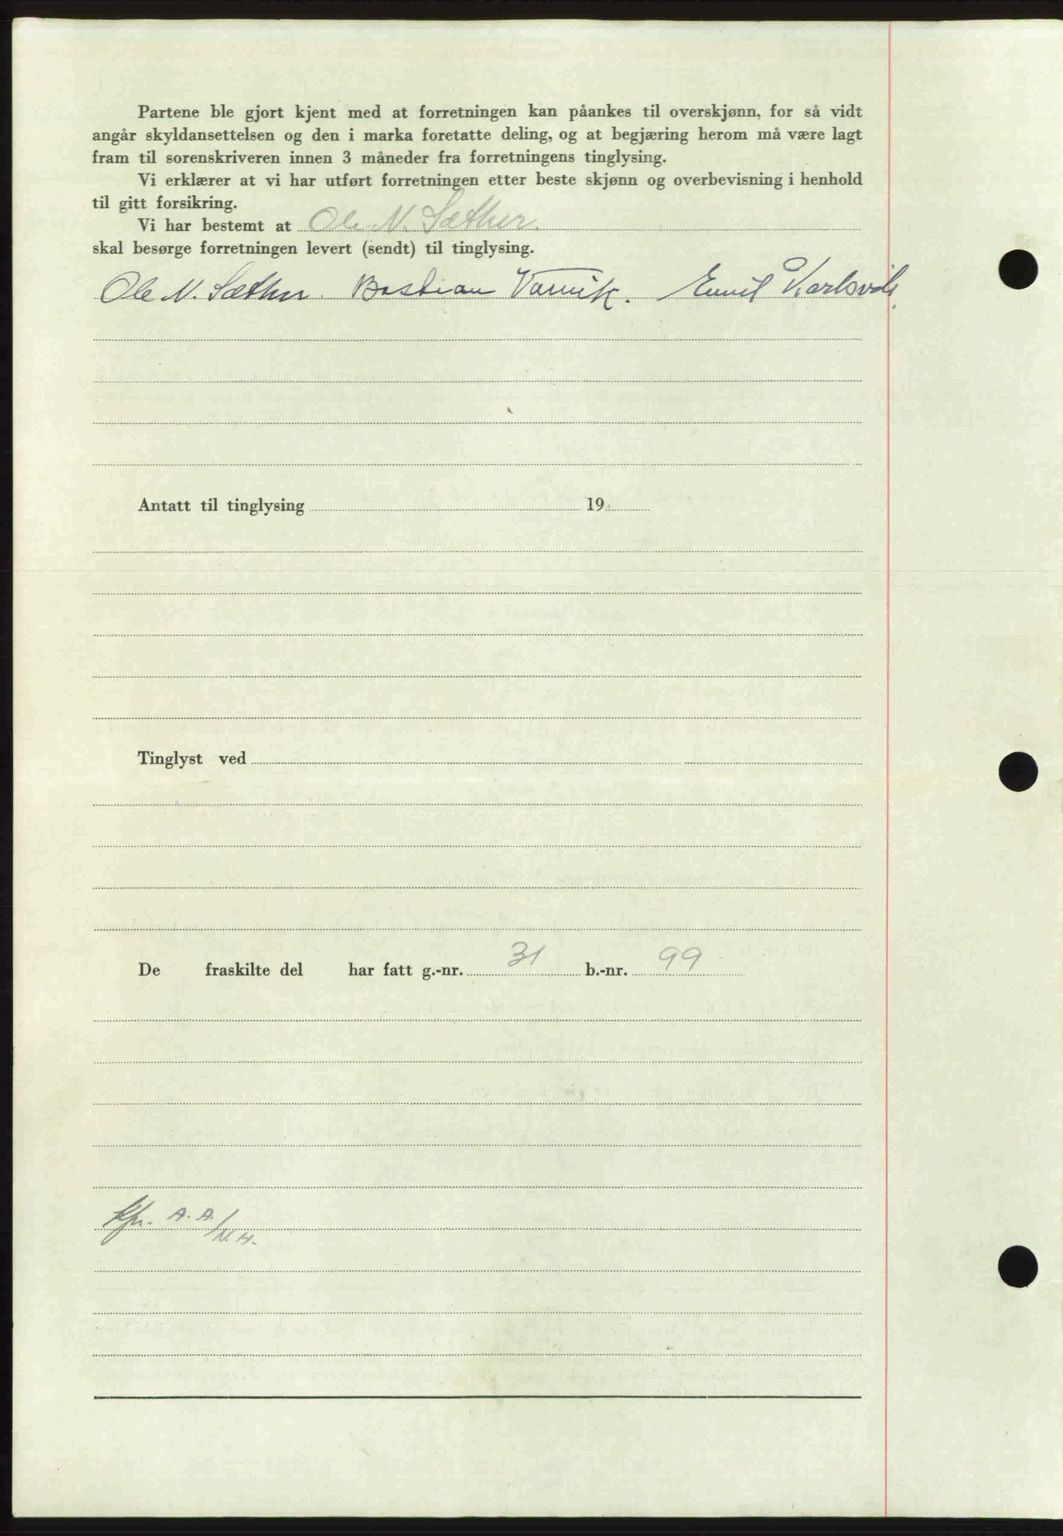 Partene ble gjort kjent med at forretningen kan påankes til overskjønn, for så vidt
angår skyldansettelsen og den i marka foretatte deling, og at begjæring herom må være lagt
fram til sorenskriveren innen 3 måneder fra forretningens tinglysing.
Vi erklærer at vi har utført forretningen etter beste skjønn og overbevisning i henhold
til gitt forsikring.
Vi har bestemt at Ole N. Sæther.
skal besørge forretningen levert (sendt) til tinglysing.
Ole N. Sæther. Bastian Varvik. Emil Karlsvik.
Antatt til tinglysing 19
Tinglyst ved
De fraskilte del har fatt g.-nr. 31 b.-nr. 99
A.A/N.H.